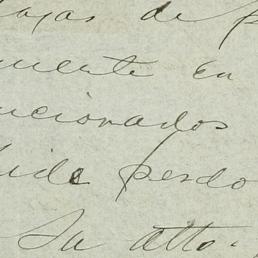 de
mente en
cionados
pide perdo
Su atto.